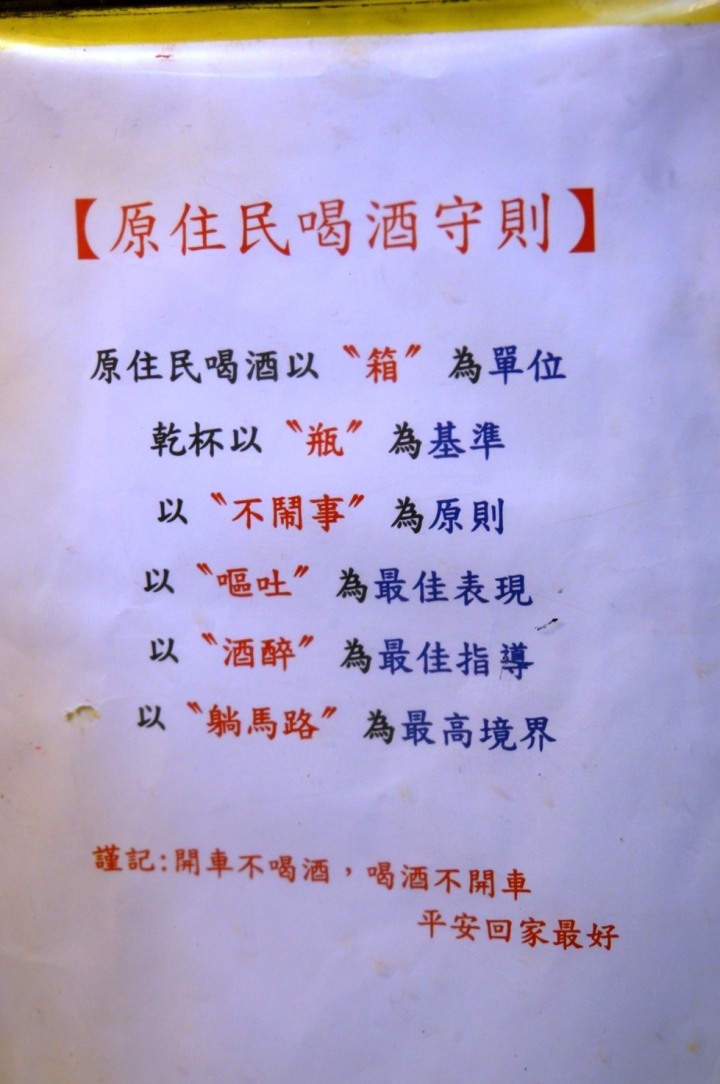 【原住民喝酒守則】
原住民喝酒以〝箱〞為單位
乾杯以〝瓶〞為基準
以〝不鬧事〞為原則
以〝嘔吐〞為最佳表現
以〝酒醉〞為最佳指導
以〝躺馬路〞為最高境界
謹記:開車不喝酒，喝酒不開車
平安回家最好